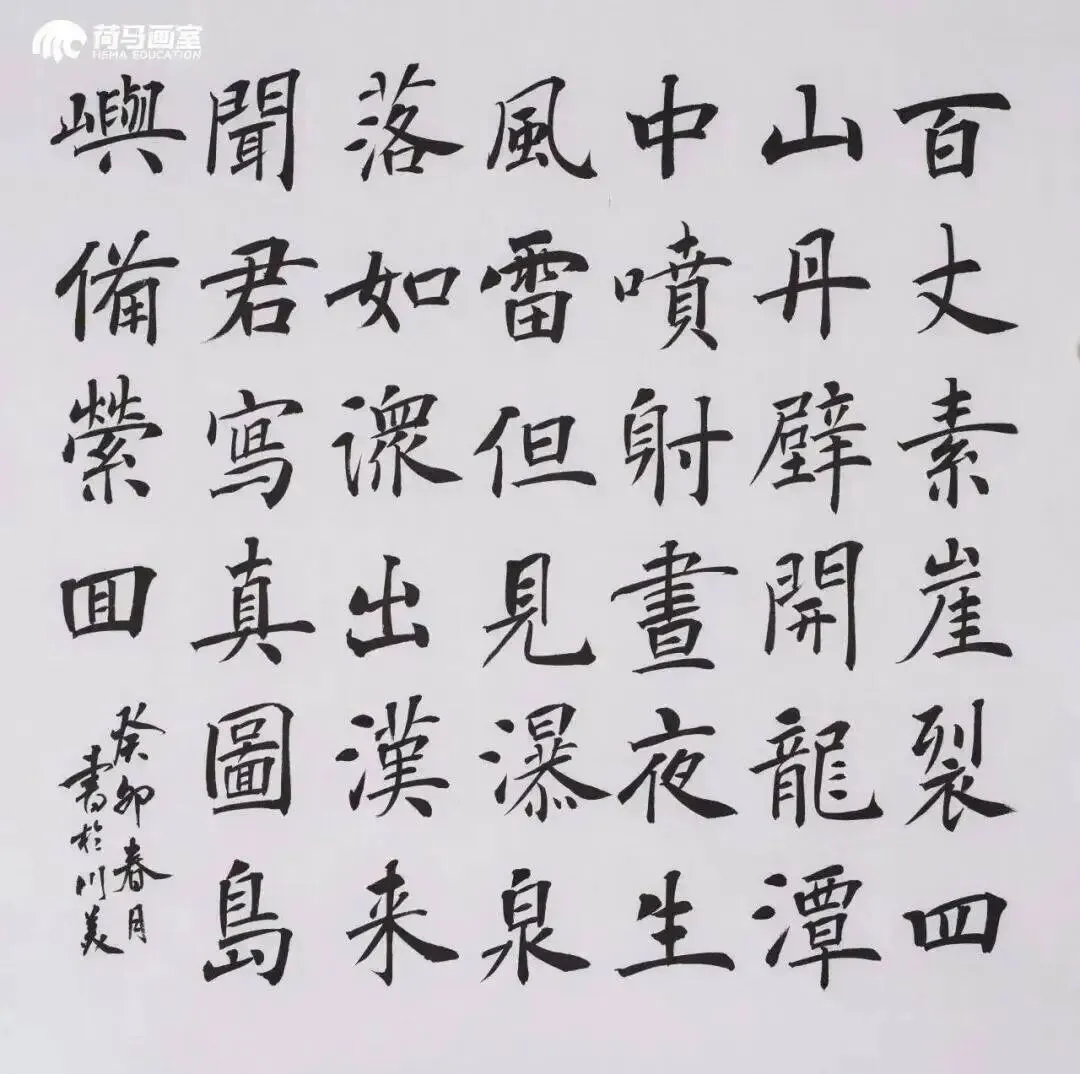 百丈素崖裂四
山丹壁開龍潭
中噴射晝夜生
風雷但見瀑泉
落如潀出漢来
聞君寫真圖島
嶼備縈回
癸卯春月
書於川美
荷马画室
HEMA EDUCATION